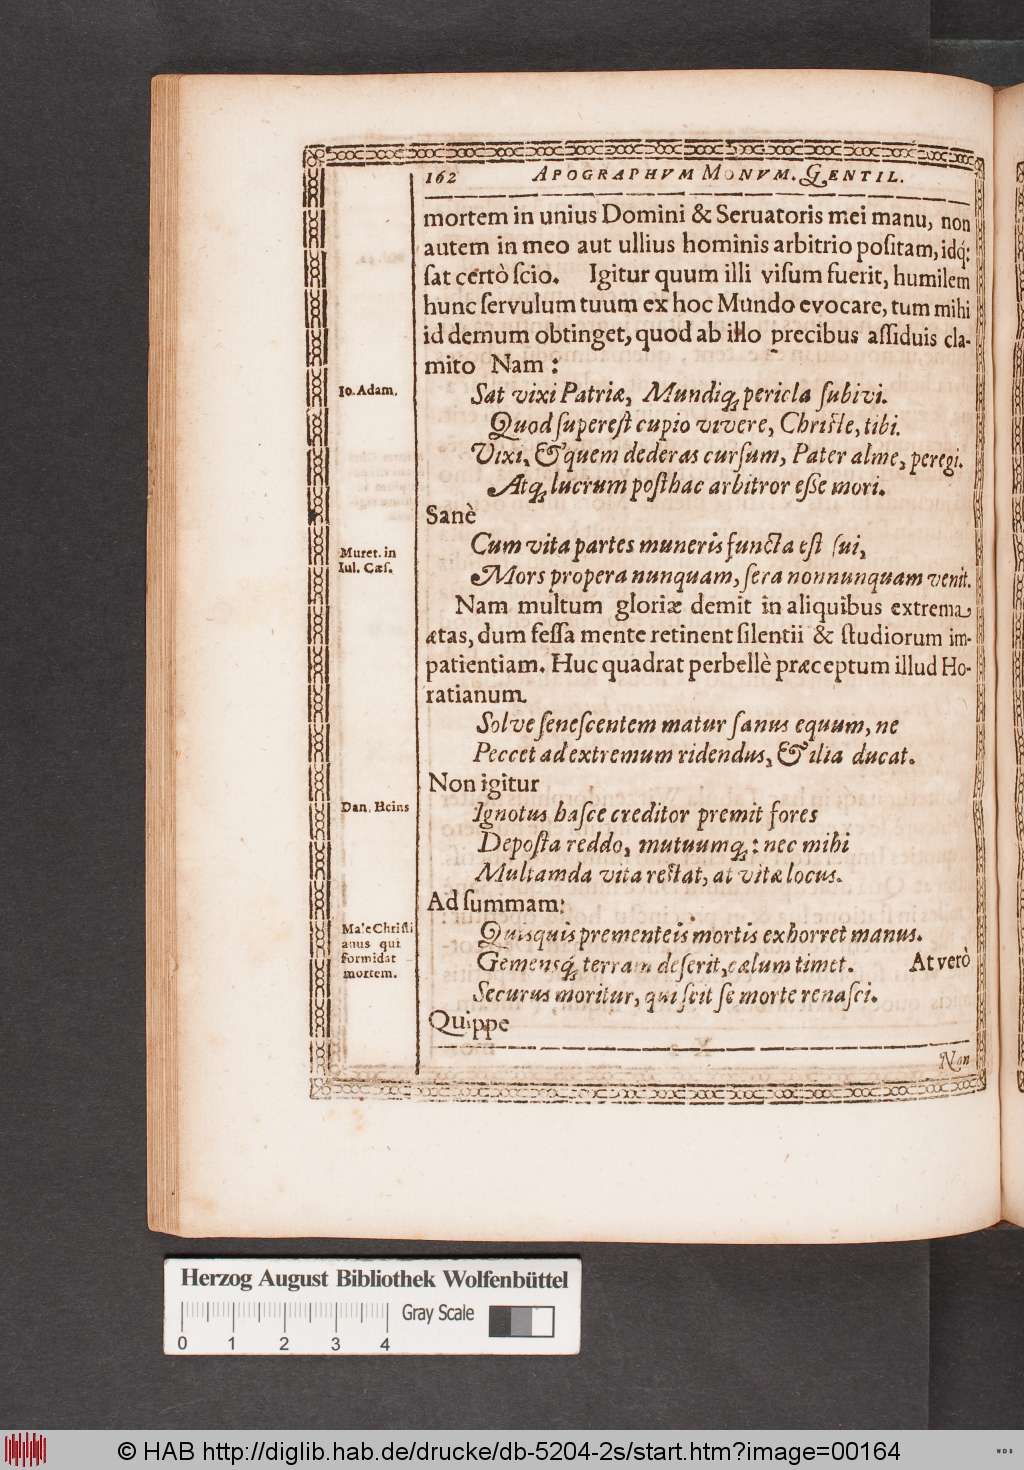 162 APOGRAPHVM MONVM. GENTIL.
mortem in unius Domini & Seruatoris mei manu, non
autem in meo aut ullius hominis arbitrio poſitam, idq́;
ſat certò ſcio. Igitur quum illi viſum fuerit, humilem
hunc ſervulum tuum ex hoc Mundo evocare, tum mihi
id demum obtinget, quod ab illo precibus aſſiduis cla-
mito Nam:
Io. Adam.
Sat vixi Patriæ, Mundiq; pericla ſubivi.
Quod ſupereſt cupio vivere, Chriſte, tibi.
Vixi, & quem dederas curſum, Pater alme, peregi.
Atq; lucrum poſthac arbitror eſſe mori.
Sanè
Muret. in
Iul. Cæſ.
Cum vita partes muneris functa eſt ſui,
Mors propera nunquam, ſera nonnunquam venit.
Nam multum gloriæ demit in aliquibus extrema
ætas, dum feſſa mente retinent ſilentii & ſtudiorum im-
patientiam. Huc quadrat perbellè præceptum illud Ho-
ratianum.
Solve ſeneſcentem matur ſanus equum, ne
Peccet ad extremum ridendus, & ilia ducat.
Non igitur
Dan. Heins
Ignotus haſce creditor premit fores
Depoſta reddo, mutuumq;: nec mihi
Multam da vita reſtat, at vitæ locus.
Ad ſummam:
Male Chriſti
anus qui
formidat
mortem.
Quiſquis prementeis mortis exhorret manus.
Gemensq́; terram deſerit, cælum timet. At verò
Securus moritur, qui ſcit ſe morte renaſci.
Quippe
Non
Herzog August Bibliothek Wolfenbüttel
Gray Scale
0 1 2 3 4
© HAB http://diglib.hab.de/drucke/db-5204-2s/start.htm?image=00164